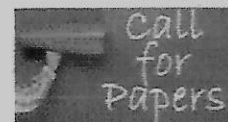 Call
for
Papers